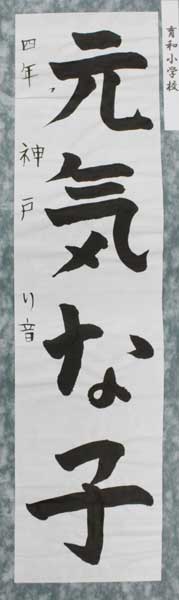 育和小学校
元気な子
四年 神戸 り音